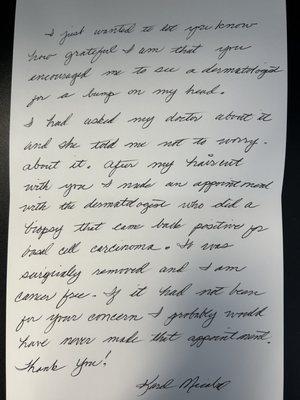 I just wanted to let you know
how grateful I am that you
encouraged me to see a dermatologist
for a bump on my head.
I had asked my doctor about it
and she told me not to worry.
about it. After my haircut
with you I made an appointment
with the dermatologist who did a
biopsy that came back positive for
basal cell carcinoma. It was
surgically removed and I am
cancer free. If it had not been
for your concern I probably would
have never made that appointment.
Thank you!